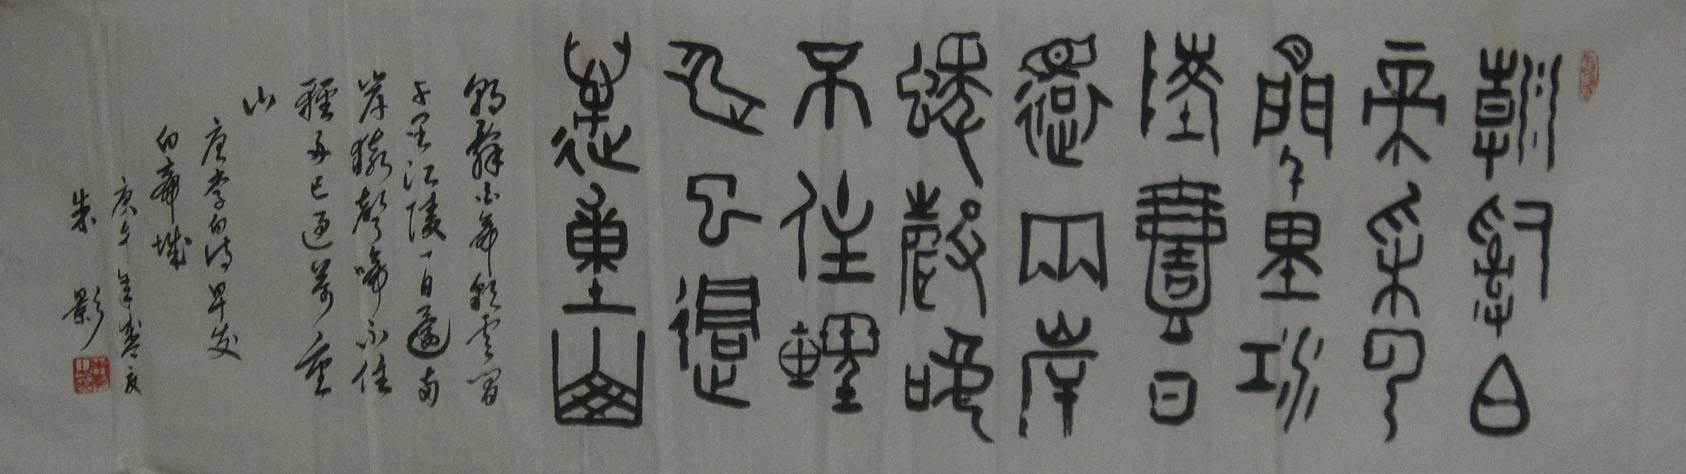 朝辭白
帝采雲
間千里江
陵壹日
還兩岸
猿聲啼
不住輕
舟已過
萬重山
朝辭白帝彩雲間
千里江陵一日還兩
岸猿聲啼不住
輕舟已過萬重
山
唐李白詩早發
白帝城
庚午年
朱影